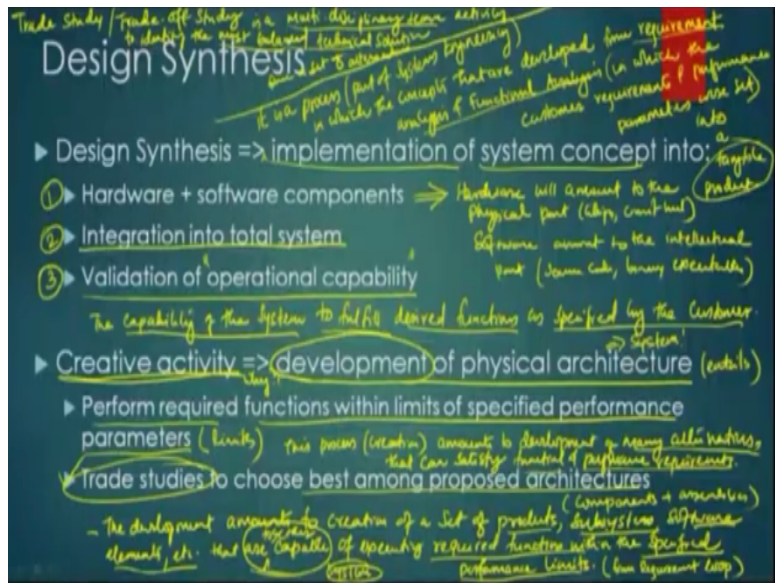 Trade Study / Trade-off Study is a multi disciplinary team activity
to identify the most balanced technical solution
Design Synthesis
It is a process (part of Systems Engineering)
in which the concepts that are developed from requirement
analysis & Functional Analysis (in which the
customer requirements & performance
parameters were set)
into
a
tangible
product
Design Synthesis => implementation of system concept into:
① Hardware + software components => Hardware will amount to the
physical part (chips,
② Integration into total system
Software amount to the intellectual
part (Source Code, binary executables)
③ Validation of operational capability
The capability of the System to fulfill desired functions as specified by the Customer.
=> System!
Creative activity => development of physical architecture (entails)
Perform required functions within limits of specified performance
parameters (limits) This process (creation) amounts to development of many alternatives,
that can satisfy functional & performance requirements.
Trade studies to choose best among proposed architectures
(Components + assemblies)
- The development amounts to creation of a set of products, subsystems, software
elements, etc. that are capable of executing required function within the specified
performance limits. (from Requirement loop)